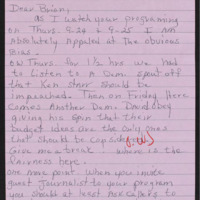 Dear Brian;
as I watch your programing
on Thurs. 9-24 & 9-25 I am
absolutely Appaled at the obvious
Bias.
on Thurs. for 1½ hrs we had
to Listen to A Dem. spout off
that Ken Starr should be
impeached. Then on Friday here
comes Another Dem. David Obey
giving his spin that their
budget ideas are the only ones
that should be
Give me a break. where is the
fairness here.
one more point when you invite
guest Journalist to your program
you should at least Ask callers to